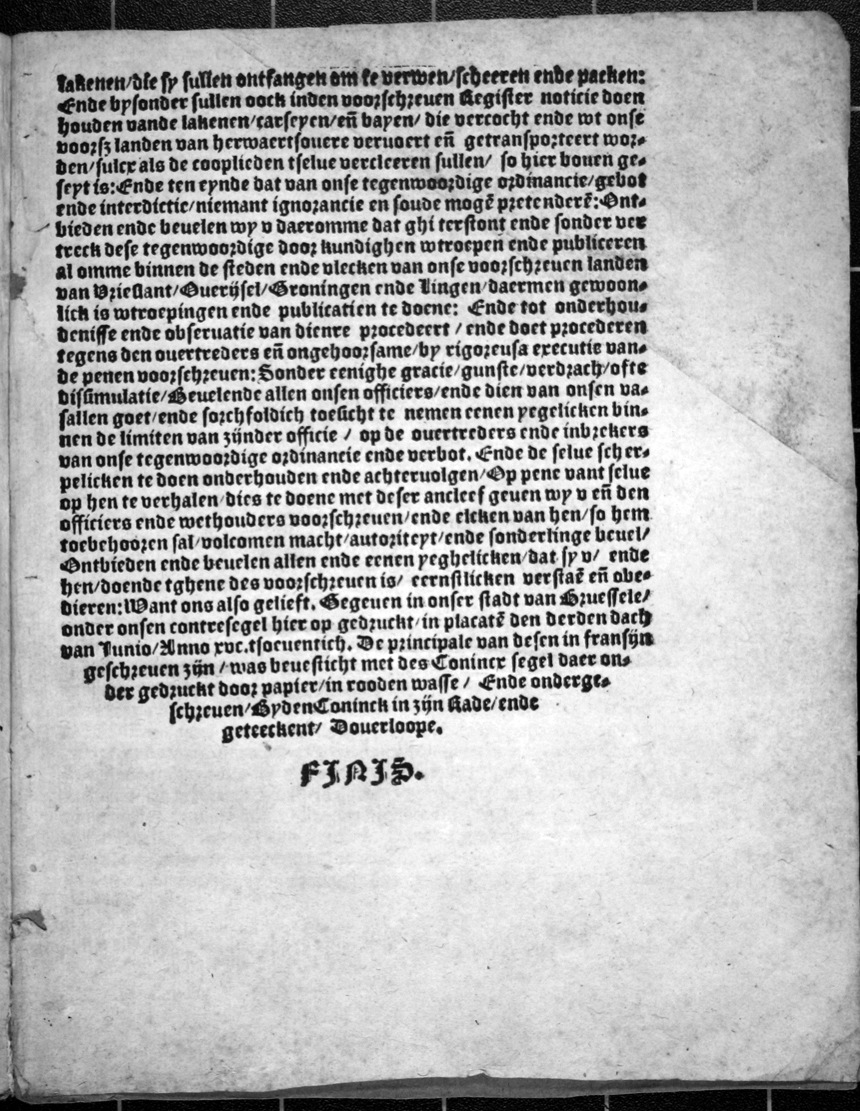 lakenen/die sy sullen ontfangen om te verwen/scheeren ende packen:
Ende bysonder sullen oock inden voorschreuen Register noticie doen
houden vande lakenen/carseyen/en̄ bayen/ die vercocht ende wt onse
voorsz landen van herwaertsouere veruoert en̄ getransporteert wor-
den/sulcx als de cooplieden tselue vercleeren sullen/ so hier bouen ge-
seyt is:Ende ten eynde dat van onse tegenwoordige ordinancie/gebot
ende interdictie/niemant ignorancie en soude mogē pretenderē:Ont-
bieden ende beuelen wy v daeromme dat ghi terstont ende sonder ver
treck dese tegenwoordige door kundighen wtroepen ende publiceren
al omme binnen de steden ende vlecken van onse voorschreuen landen
van Vrieslant/Ouerijsel/Groningen ende Lingen/daermen gewoon-
lick is wtroepingen ende publicatien te doene: Ende tot onderhou-
denisse ende obseruatie van dienre procedeert / ende doet procederen
tegens den ouertreders en̄ ongehoorsame/by rigoreusa executie van-
de penen voorschreuen:Sonder eenighe gracie/gunste/verdrach/ofte
dissimulatie/Beuelende allen onsen officiers/ende dien van onsen va-
sallen goet/ende sorchfoldich toesicht te nemen eenen yegelicken bin-
nen de limiten van zijnder officie / op de ouertreders ende inbrekers
van onse tegenwoordige ordinancie ende verbot. Ende de selue scher-
pelicken te doen onderhouden ende achteruolgen/Op pene vant selue
op hen te verhalen/dies te doene met deser ancleef geuen wy v en̄ den
officiers ende wethouders voorschreuen/ende elcken van hen/so hem
toebehooren sal/volcomen macht/autoriteyt/ende sonderlinge beuel/
Ontbieden ende beuelen allen ende eenen yeghelicken/dat sy v/ ende
hen/doende tghene des voorschreuen is/ eernstlicken verstaē en̄ obe-
dieren:Want ons also gelieft. Gegeuen in onser stadt van Bruessele/
onder onsen contresegel hier op gedruckt/in placatē den derden dach
van Iunio/Anno xvc.tsocuentich. De principale van desen in fransijn
geschreuen zijn / was beuesticht met des Conincx segel daer on-
der gedruckt door papier/in rooden wasse / Ende onderge-
schreuen/Byden Coninck in zijn Rade/ende
geteeckent/ Douerloope.
FINIS.